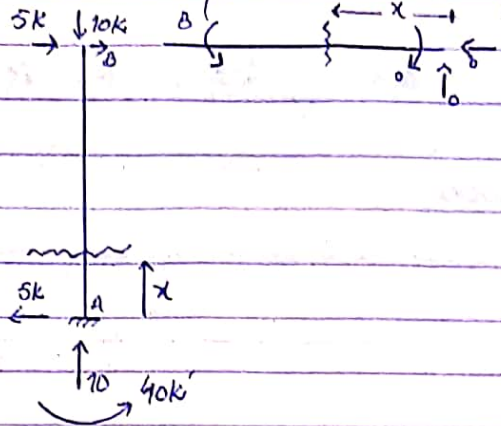 5k 10k B x
B 0 0 0
5k A x
10 40k'